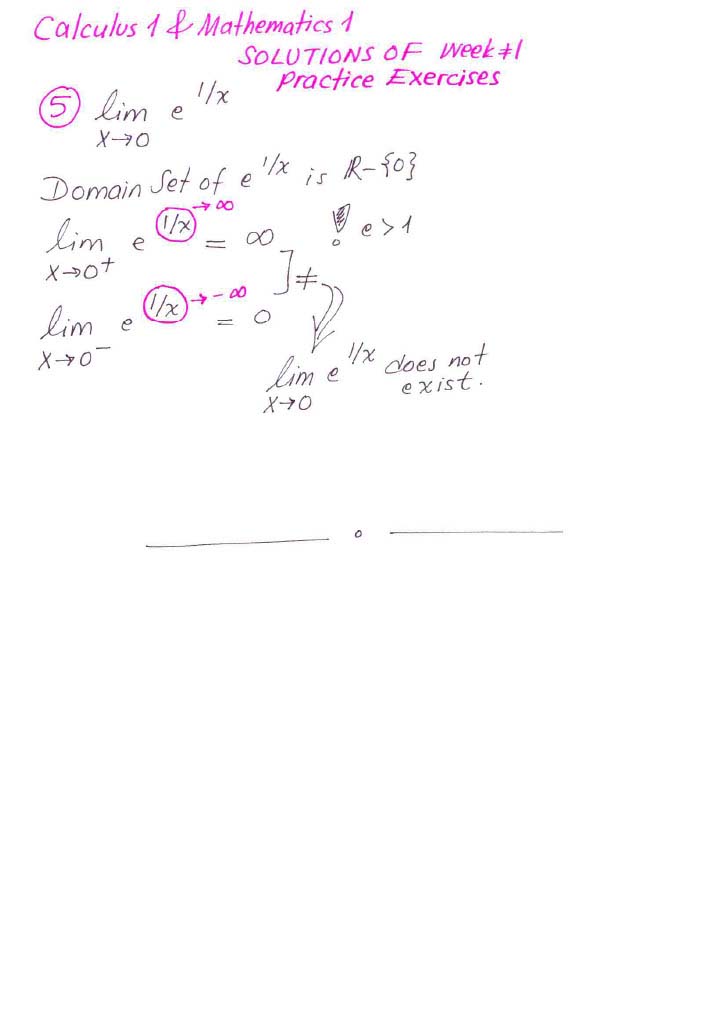 Calculus 1 & Mathematics 1
SOLUTIONS OF Week#1
Practice Exercises
⑤ lim e^{1/x}
x→0
Domain Set of e^{1/x} is R-{0}
lim e^{1/x →∞} = ∞ ! e>1
x→0⁺
] ≠
lim e^{1/x →-∞} = 0
x→0⁻
lim e^{1/x} does not
x→0 exist.